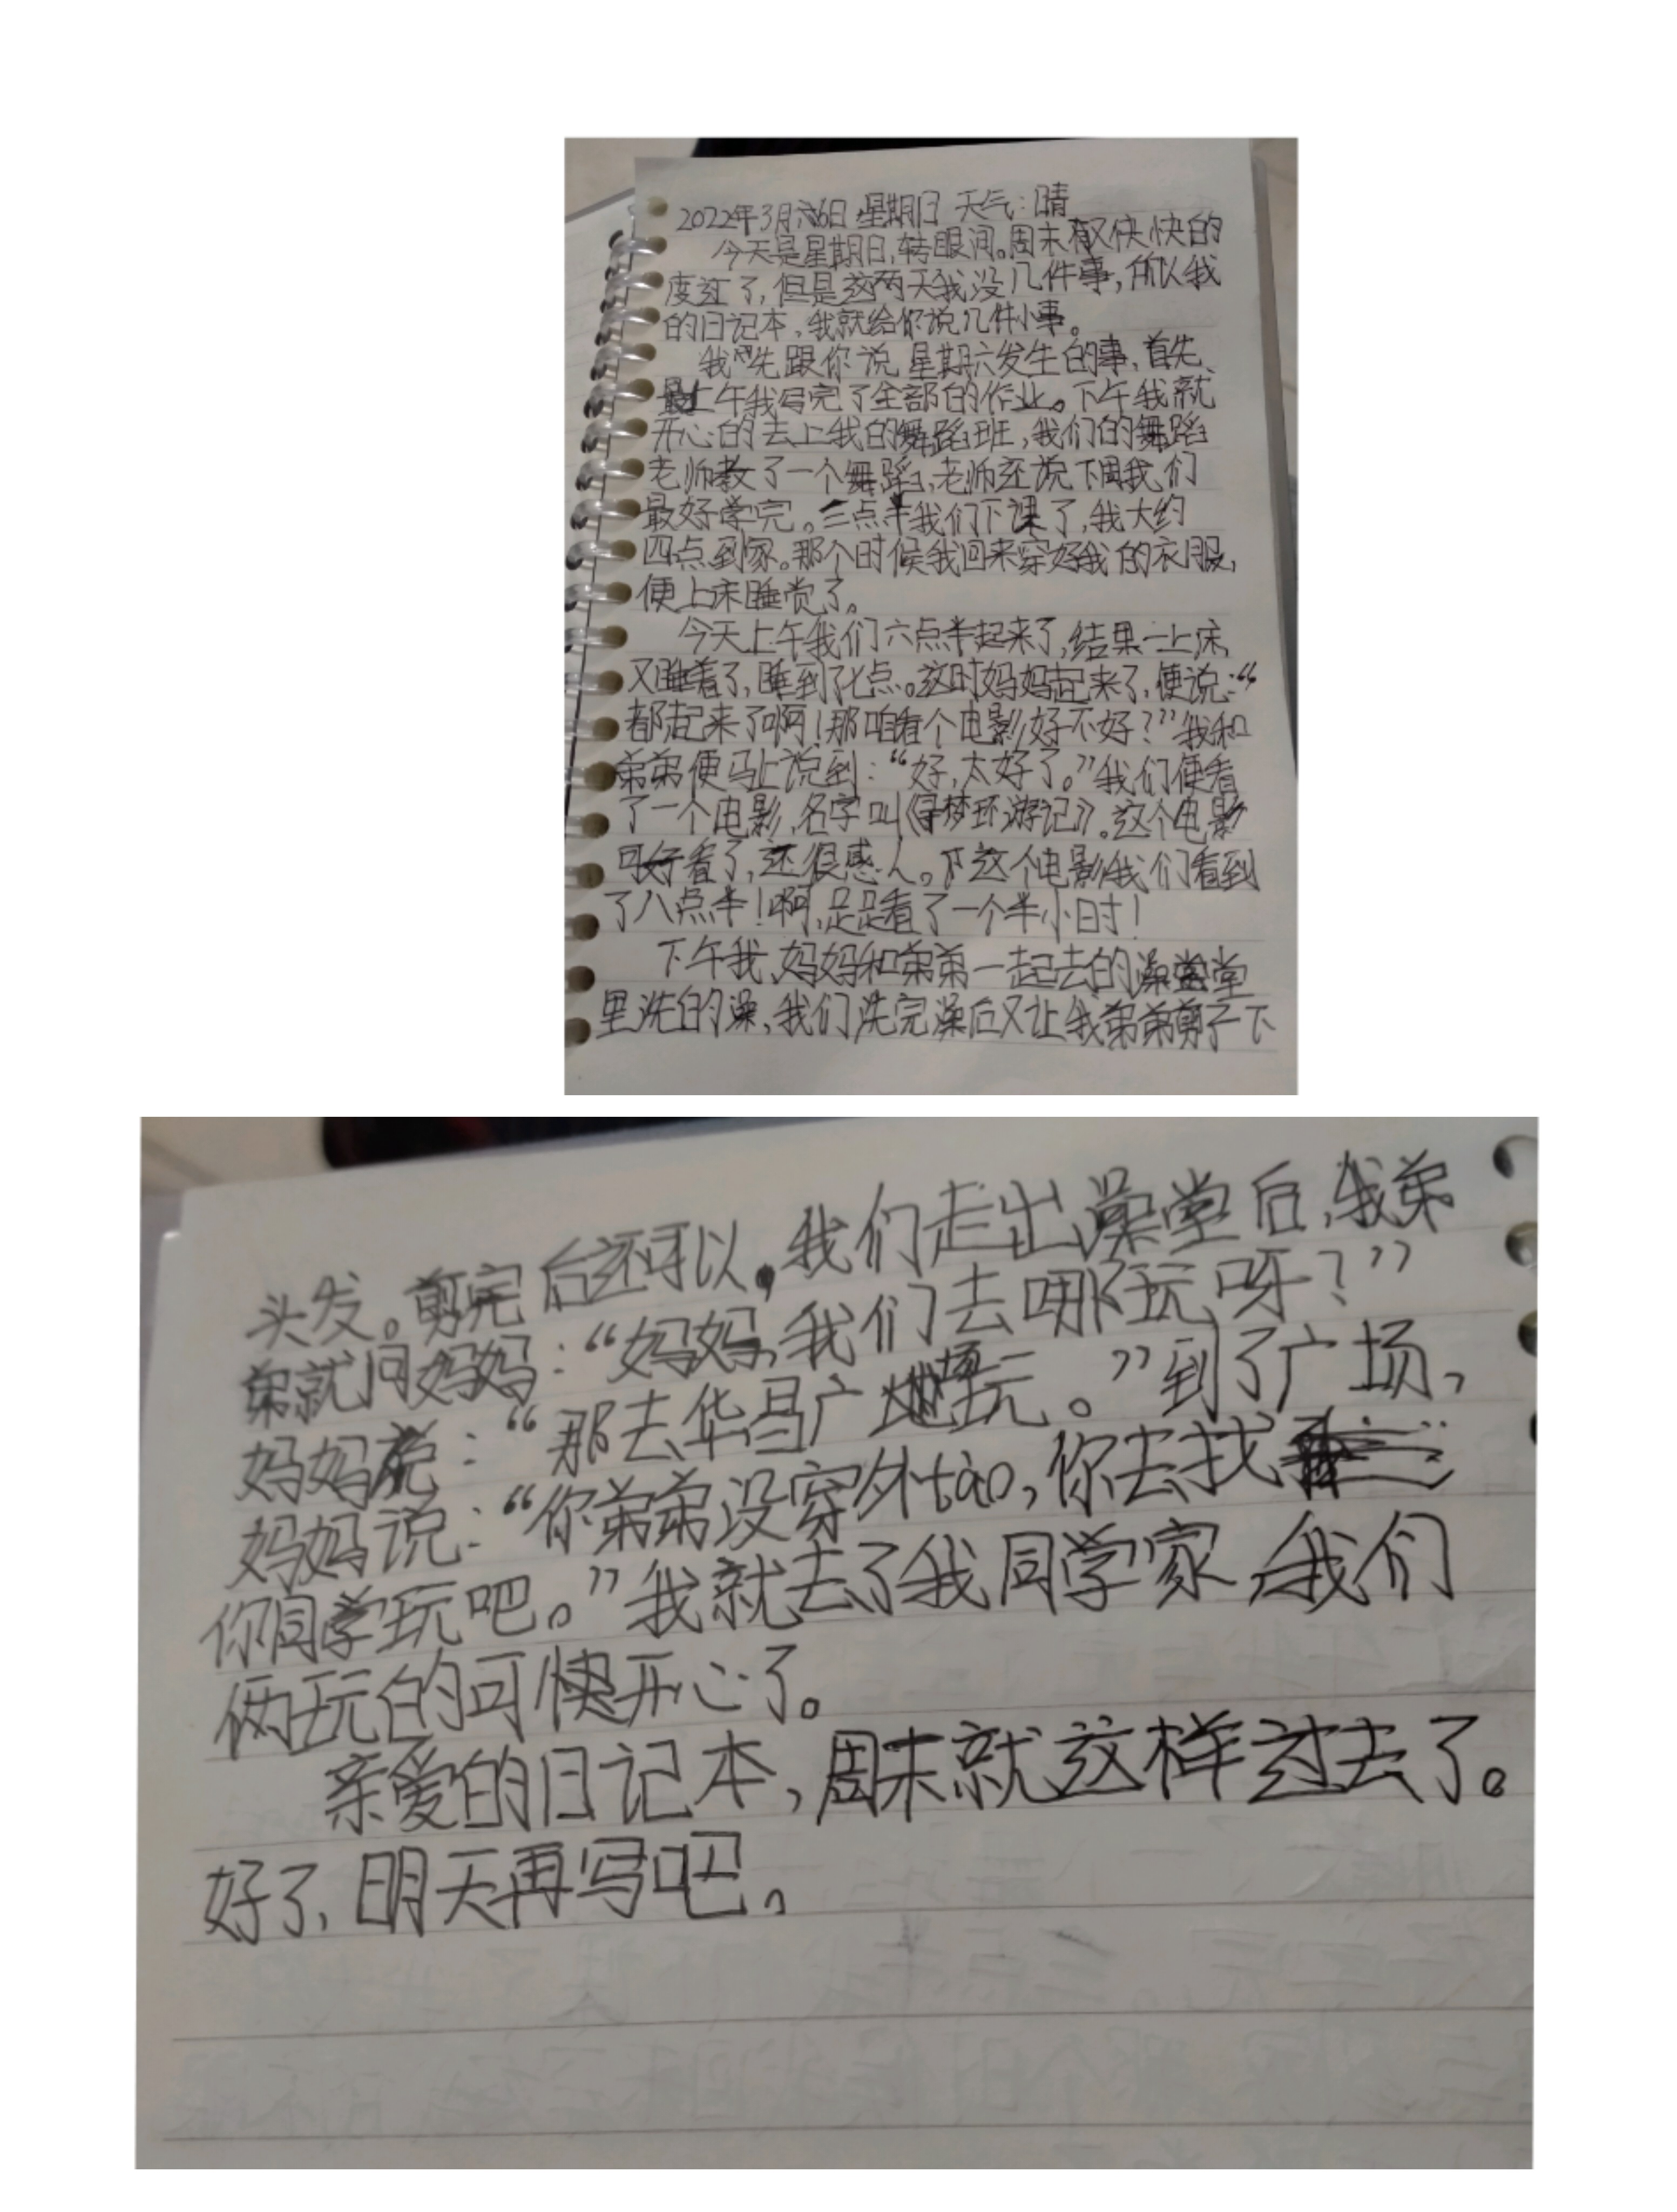 2022年3月6日 星期日 天气:晴
今天是星期日,转眼间。周末又快快的
度过了,但是这两天我没几件事,所以我
的日记本,我就给你说几件小事。
我先跟你说星期六发生的事,首先,
上午我写完了全部的作业。下午我就
开心的去上我的舞蹈班,我们的舞蹈
老师教了一个舞蹈,老师还说下周我们
最好学完。三点半我们下课了,我大约
四点到家。那个时候我回来穿好我的衣服,
便上床睡觉了。
今天上午我们六点半起来了,结果一上床,
又睡着了,睡到了七点。这时妈妈起来了,便说:“
都起来了啊!那咱看个电影好不好?”我和
弟弟便马上说到:“好,太好了。”我们便看
了一个电影,名字叫《寻梦环游记》。这个电影
可好看了,还很感人。这个电影我们看到
了八点半!啊,足足看了一个半小时!
下午我、妈妈和弟弟一起去的澡堂
里洗的澡,我们洗完澡后又让我弟弟剪了一下
头发。剪完后还可以,我们走出澡堂后,我弟
弟就问妈妈:“妈妈,我们去哪玩呀?”
妈妈说:“那去华昌广场玩。”到了广场,
妈妈说:“你弟弟没穿外tào,你去找
你同学玩吧。”我就去了我同学家,我们
俩玩的可快开心了。
亲爱的日记本,周末就这样过去了。
好了,明天再写吧。